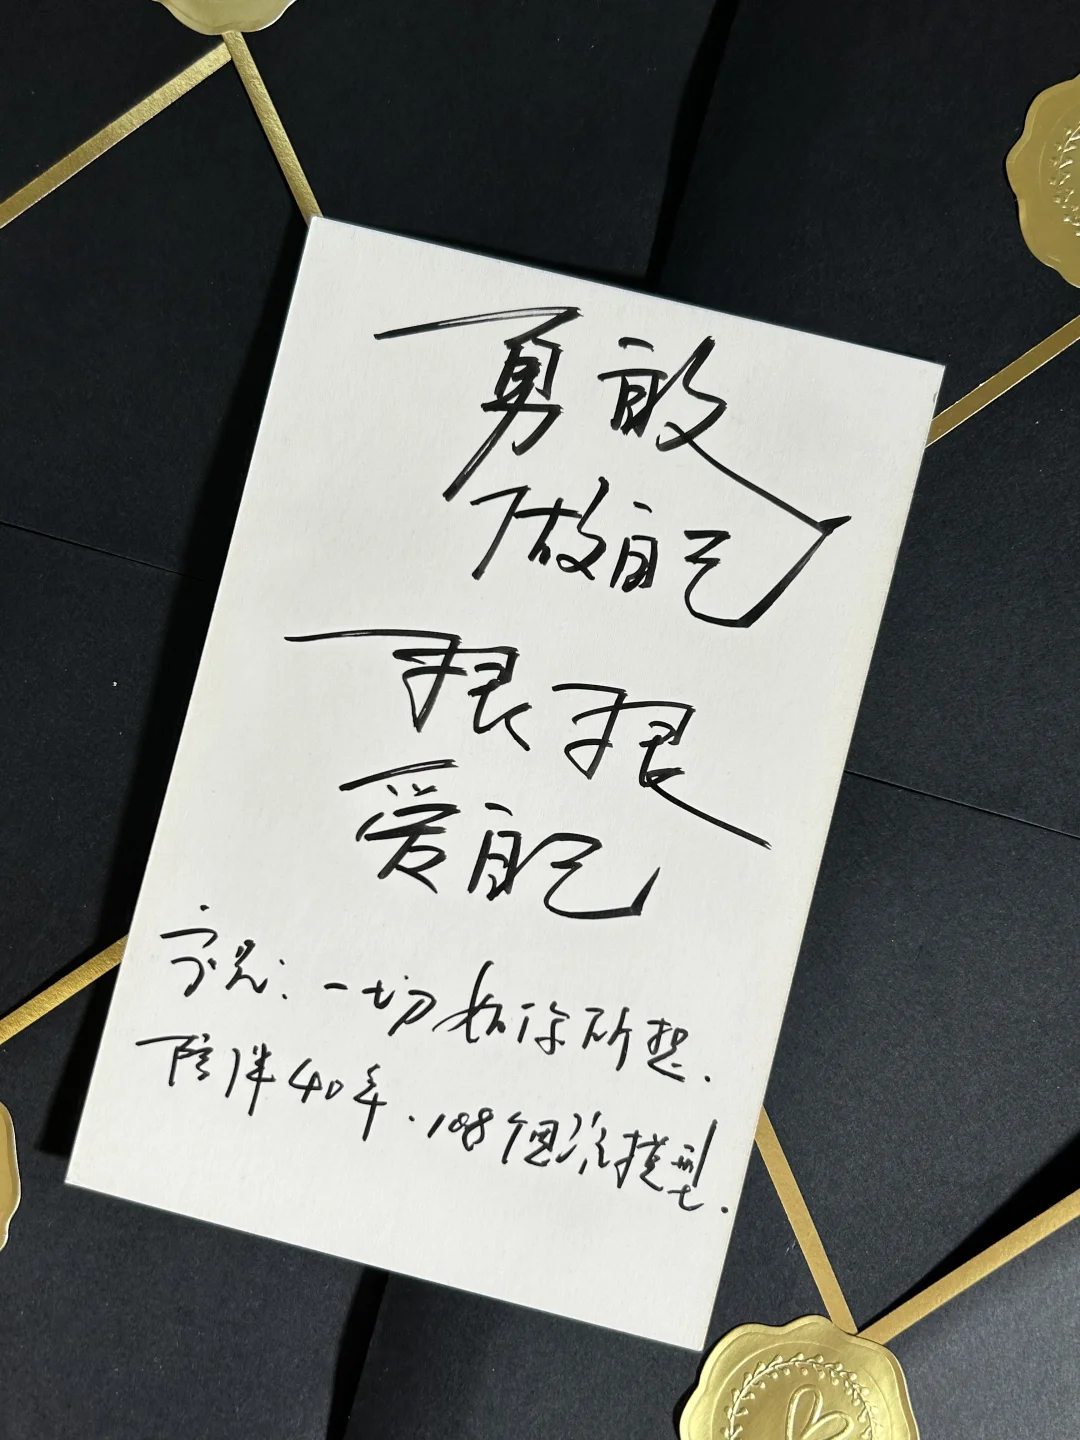 勇敢
做自己
狠狠
爱自己
字兄：一切如你所想.
陪伴40年.108个思维模型.